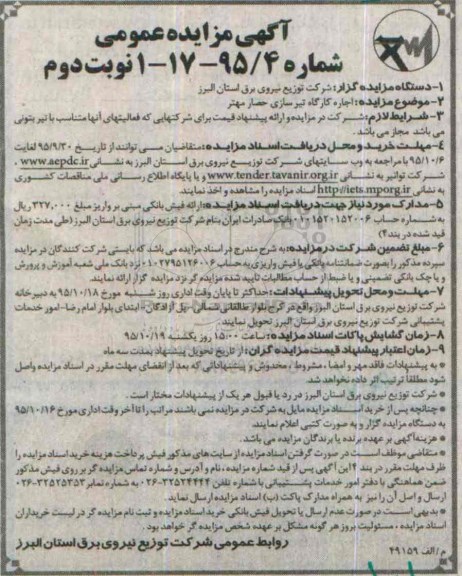 آگهی مزایده عمومی
شماره ۹۵/۴-۱۷-۱ نوبت دوم
۱-دستگاه مزایده گزار: شرکت توزیع نیروی برق استان البرز
۲-موضوع مزایده: اجاره کارگاه تیر سازی حصار مهتر
۳- شرایط لازم: شرکت در مزایده و ارائه پیشنهاد قیمت برای شرکتهایی که فعالیتهای آنها متناسب با تیر بتونی
می باشد مجاز می باشد.
۴-مهلت خرید و محل دریافت اسناد مزایده: متقاضیان می توانند از تاریخ ۹۵/۹/۳۰ لغایت
۹۵/۱۰/۶ با مراجعه به وب سایتهای شرکت توزیع نیروی برق استان البرز به نشانی www.aepdc.ir ،
شرکت توانیر به نشانی www.tender.tavanir.org.ir و یا پایگاه اطلاع رسانی ملی مناقصات کشوری
به نشانی http://iets.mporg.ir اسناد مزایده را مشاهده و اخذ نمایند.
۵-مدارک مورد نیاز جهت دریافت اسناد مزایده: ارائه فیش بانکی مبنی بر واریز مبلغ ۳۲۷,۰۰۰ ریال
به شماره حساب ۰۱۰۱۵۲۰۱۵۲۰۰۶ بانک صادرات ایران بنام شرکت توزیع نیروی برق استان البرز (طی مدت زمان
قید شده در بند ۴)
۶-مبلغ تضمین شرکت در مزایده: به شرح مندرج در اسناد مزایده می باشد که بایستی شرکت کنندگان در مزایده
سپرده مذکور را بصورت ضمانتنامه بانکی یا فیش واریزی به حساب ۰۱۰۲۷۹۵۱۲۶۰۰۶ نزد بانک ملی شعبه آموزش و پرورش
و یا چک بانکی تضمینی و یا ضبط از حساب مطالبات تایید شده مزایده گر نزد مزایده گزار ارائه نمایند.
۷-مهلت و محل تحویل پیشنهادات: حداکثر تا پایان وقت اداری روز شنبه مورخ ۹۵/۱۰/۱۸ به دبیرخانه
شرکت توزیع نیروی برق استان البرز واقع در کرج بلوار طالقانی شمالی-پل آزادگان-ابتدای بلوار امام رضا-امور خدمات
پشتیبانی شرکت توزیع نیروی برق استان البرز تحویل نمایند.
۸-زمان گشایش پاکات اسناد مزایده: ساعت ۱۵:۰۰ روز یکشنبه ۹۵/۱۰/۱۹
۹-زمان اعتبار پیشنهاد قیمت مزایده گران: از تاریخ تحویل پیشنهاد بمدت سه ماه
* به پیشنهادات فاقد مهر و امضا، مشروط، مخدوش و پیشنهاداتی که بعد از انقضای مهلت مقرر در اسناد مزایده واصل
شود مطلقا ترتیب اثر داده نخواهد شد.
* شرکت توزیع نیروی برق استان البرز در رد یا قبول هر یک از پیشنهادات مختار است.
* چنانچه پس از خرید اسناد مزایده مایل به شرکت در مزایده نمی باشند مراتب را تا آخر وقت اداری مورخ ۹۵/۱۰/۱۶
به دستگاه مزایده گزار و به صورت کتبی اعلام نمایند.
* هزینه آگهی بر عهده برنده یا برندگان مزایده می باشد.
* متقاضی موظف است در صورت گرفتن اسناد مزایده از سایت های مذکور فیش پرداخت هزینه خرید اسناد مزایده را
ظرف مهلت مقرر در بند ۴ این آگهی پس از قید شماره مزایده، نام و آدرس و شماره تماس مزایده گر بر روی فیش مذکور
ضمن هماهنگی با دفتر امور خدمات پشتیبانی با شماره تلفن ۳۲۵۲۴۴۴۴-۰۲۶ به شماره نمابر ۳۲۵۲۵۳۵۳-۰۲۶
ارسال و اصل آن را نیز به همراه مدارک پاکت (ب) اسناد مزایده ارسال نماید.
* بدیهی است در صورت عدم ارسال یا تحویل فیش بانکی خرید اسناد مزایده و ثبت نام مزایده گر در لیست خریداران
اسناد مزایده، مسئولیت بروز هر گونه مشکل بر عهده شخص مزایده گر خواهد بود.
روابط عمومی شرکت توزیع نیروی برق استان البرز
م/الف ۴۹۱۵۹